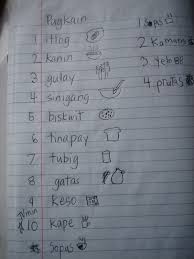 Pagkain
1 itlog
2 kanin
3 gulay
4 sinigang
5 biskwit
6 tinapay
7 tubig
8 gatas
9 Keso
10 Kape
Sopas
1 Sopas
2 Kamatis
3 yelo
4 prutas